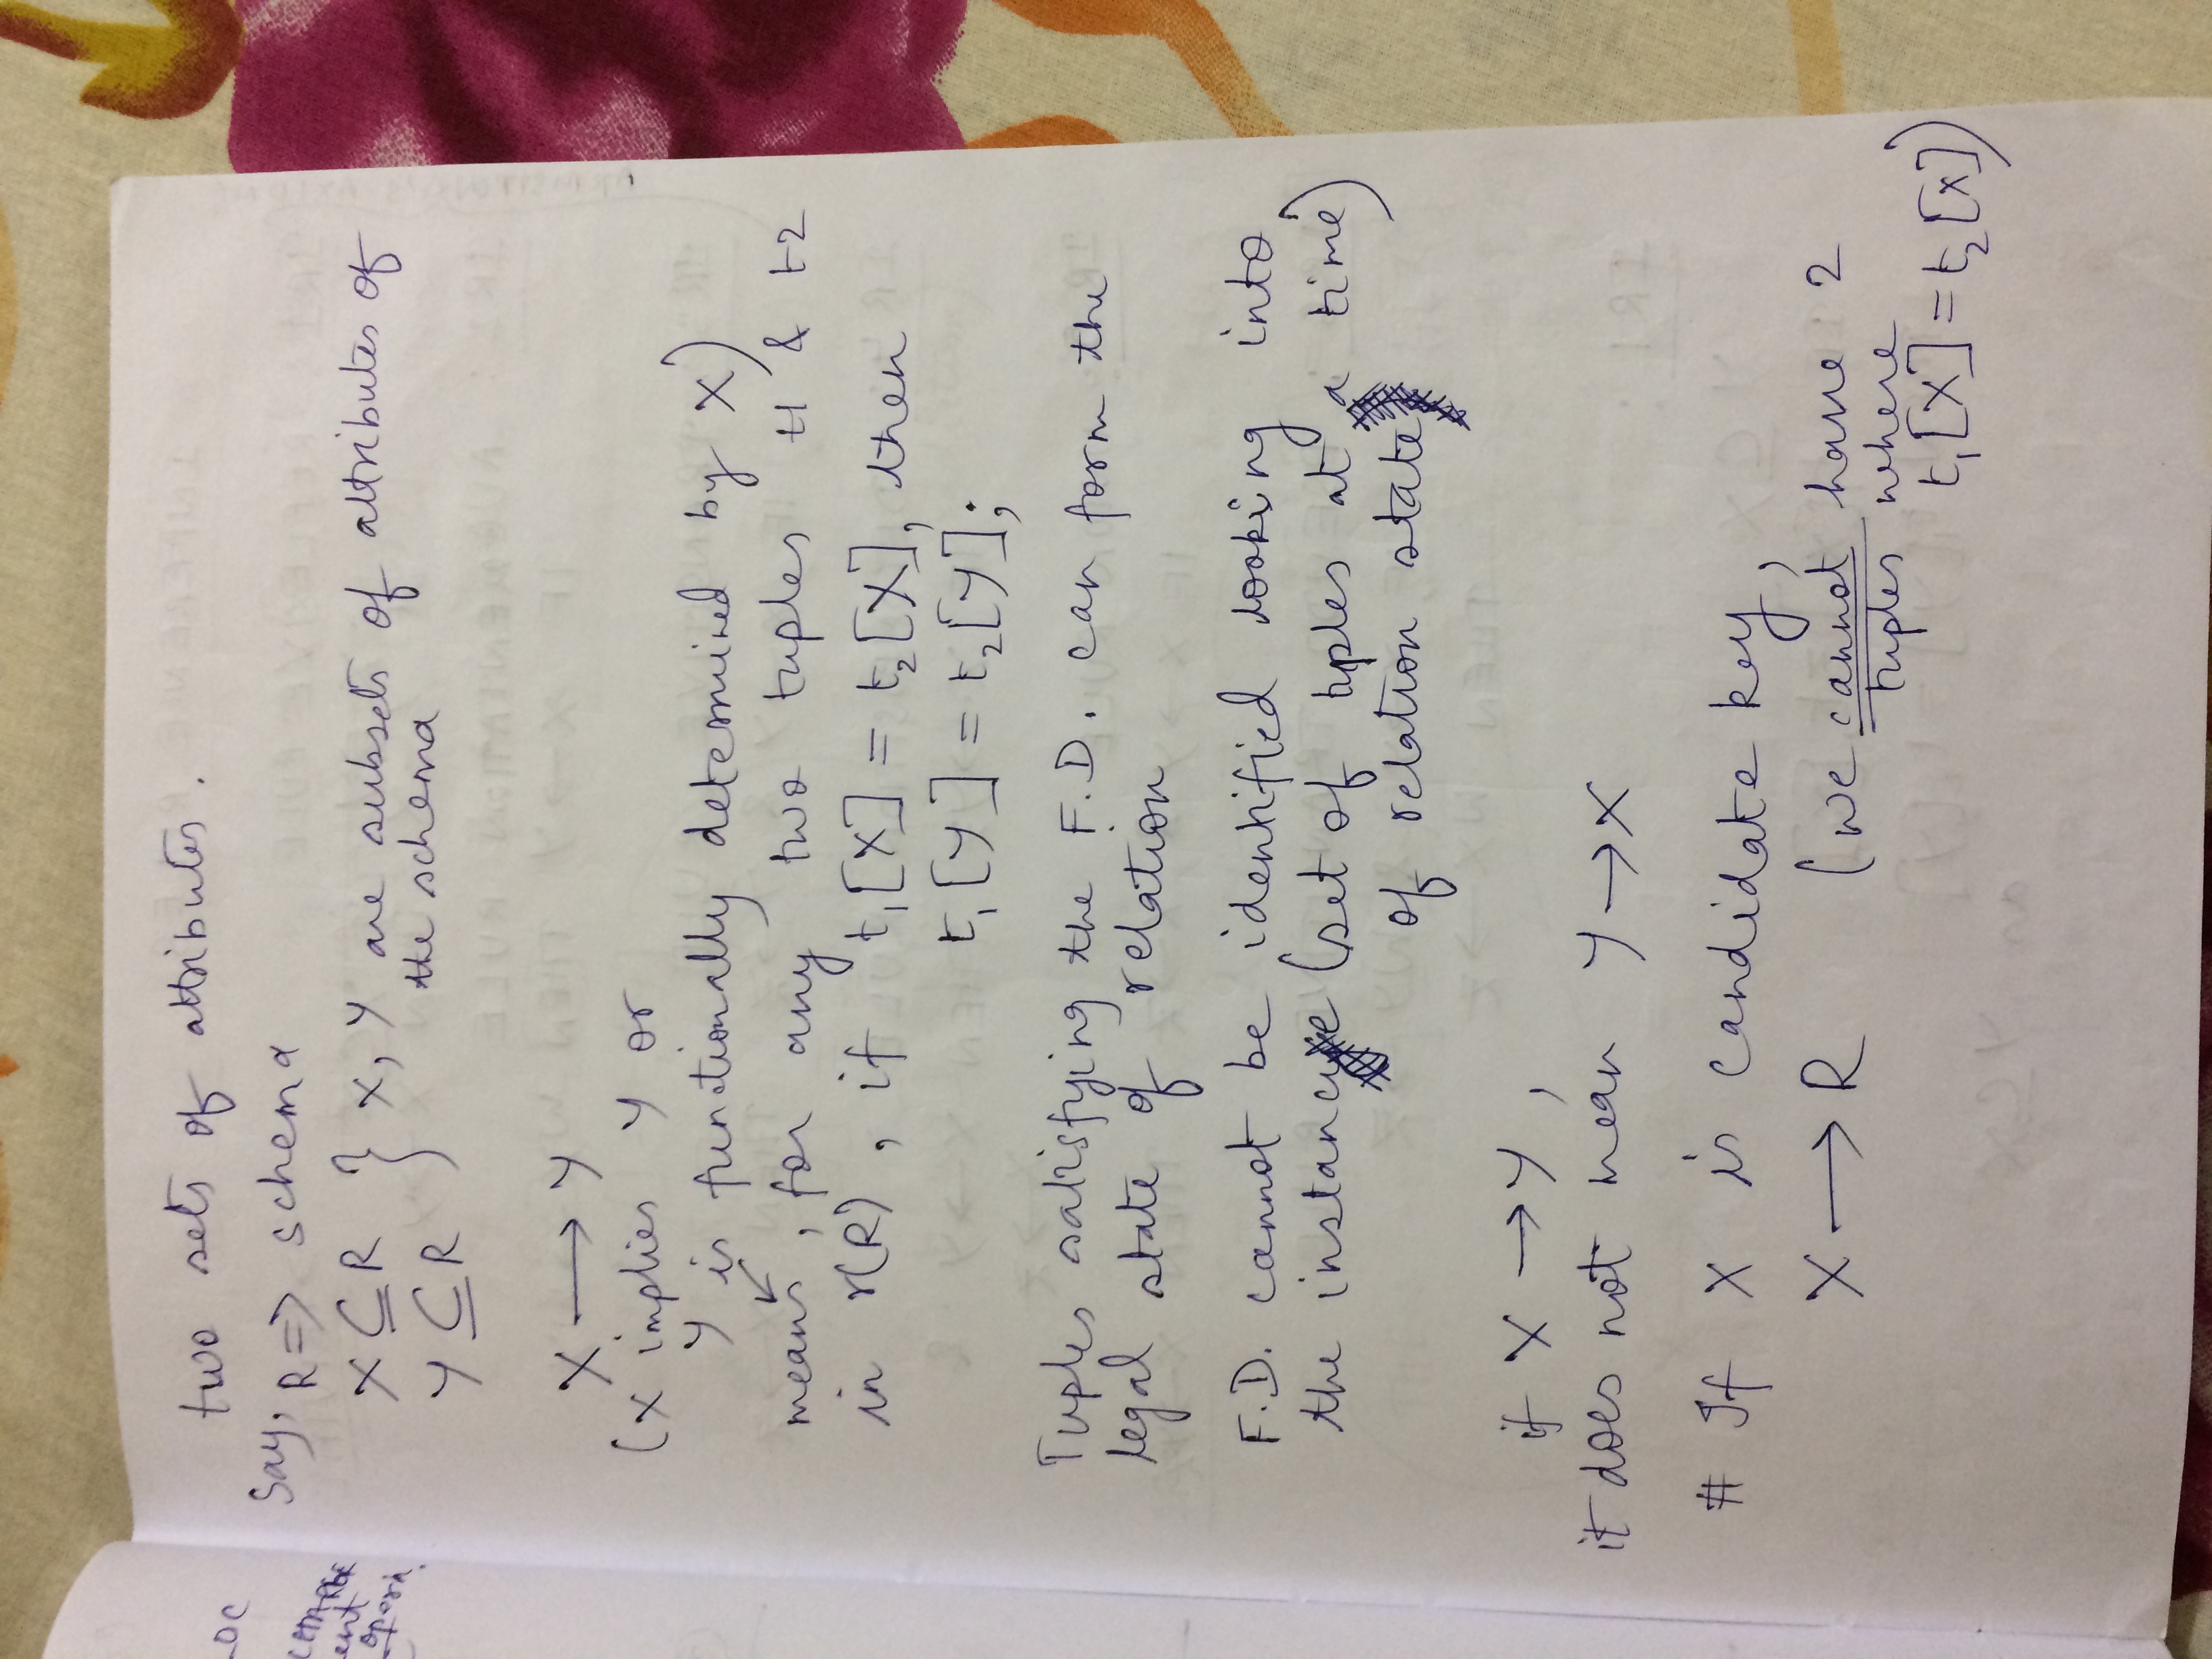 two sets of attributes.
Say, R => schema
X ⊆ R } X, Y are subsets of attributes of
the schema
Y ⊆ R
X → Y
(X implies Y or
Y is functionally determined by X)
means, for any two tuples t1 & t2
in r(R), if t₁[X] = t₂[X], then
t₁[Y] = t₂[Y];
Tuples satisfying the F.D. can form the
legal state of relation
F.D. cannot be identified looking into
the instance (set of tples at a time)
of relation state
if X → Y,
it does not mean Y → X
# If X is candidate key,
X → R (we cannot have 2
tuples where
t₁[X] = t₂[X])